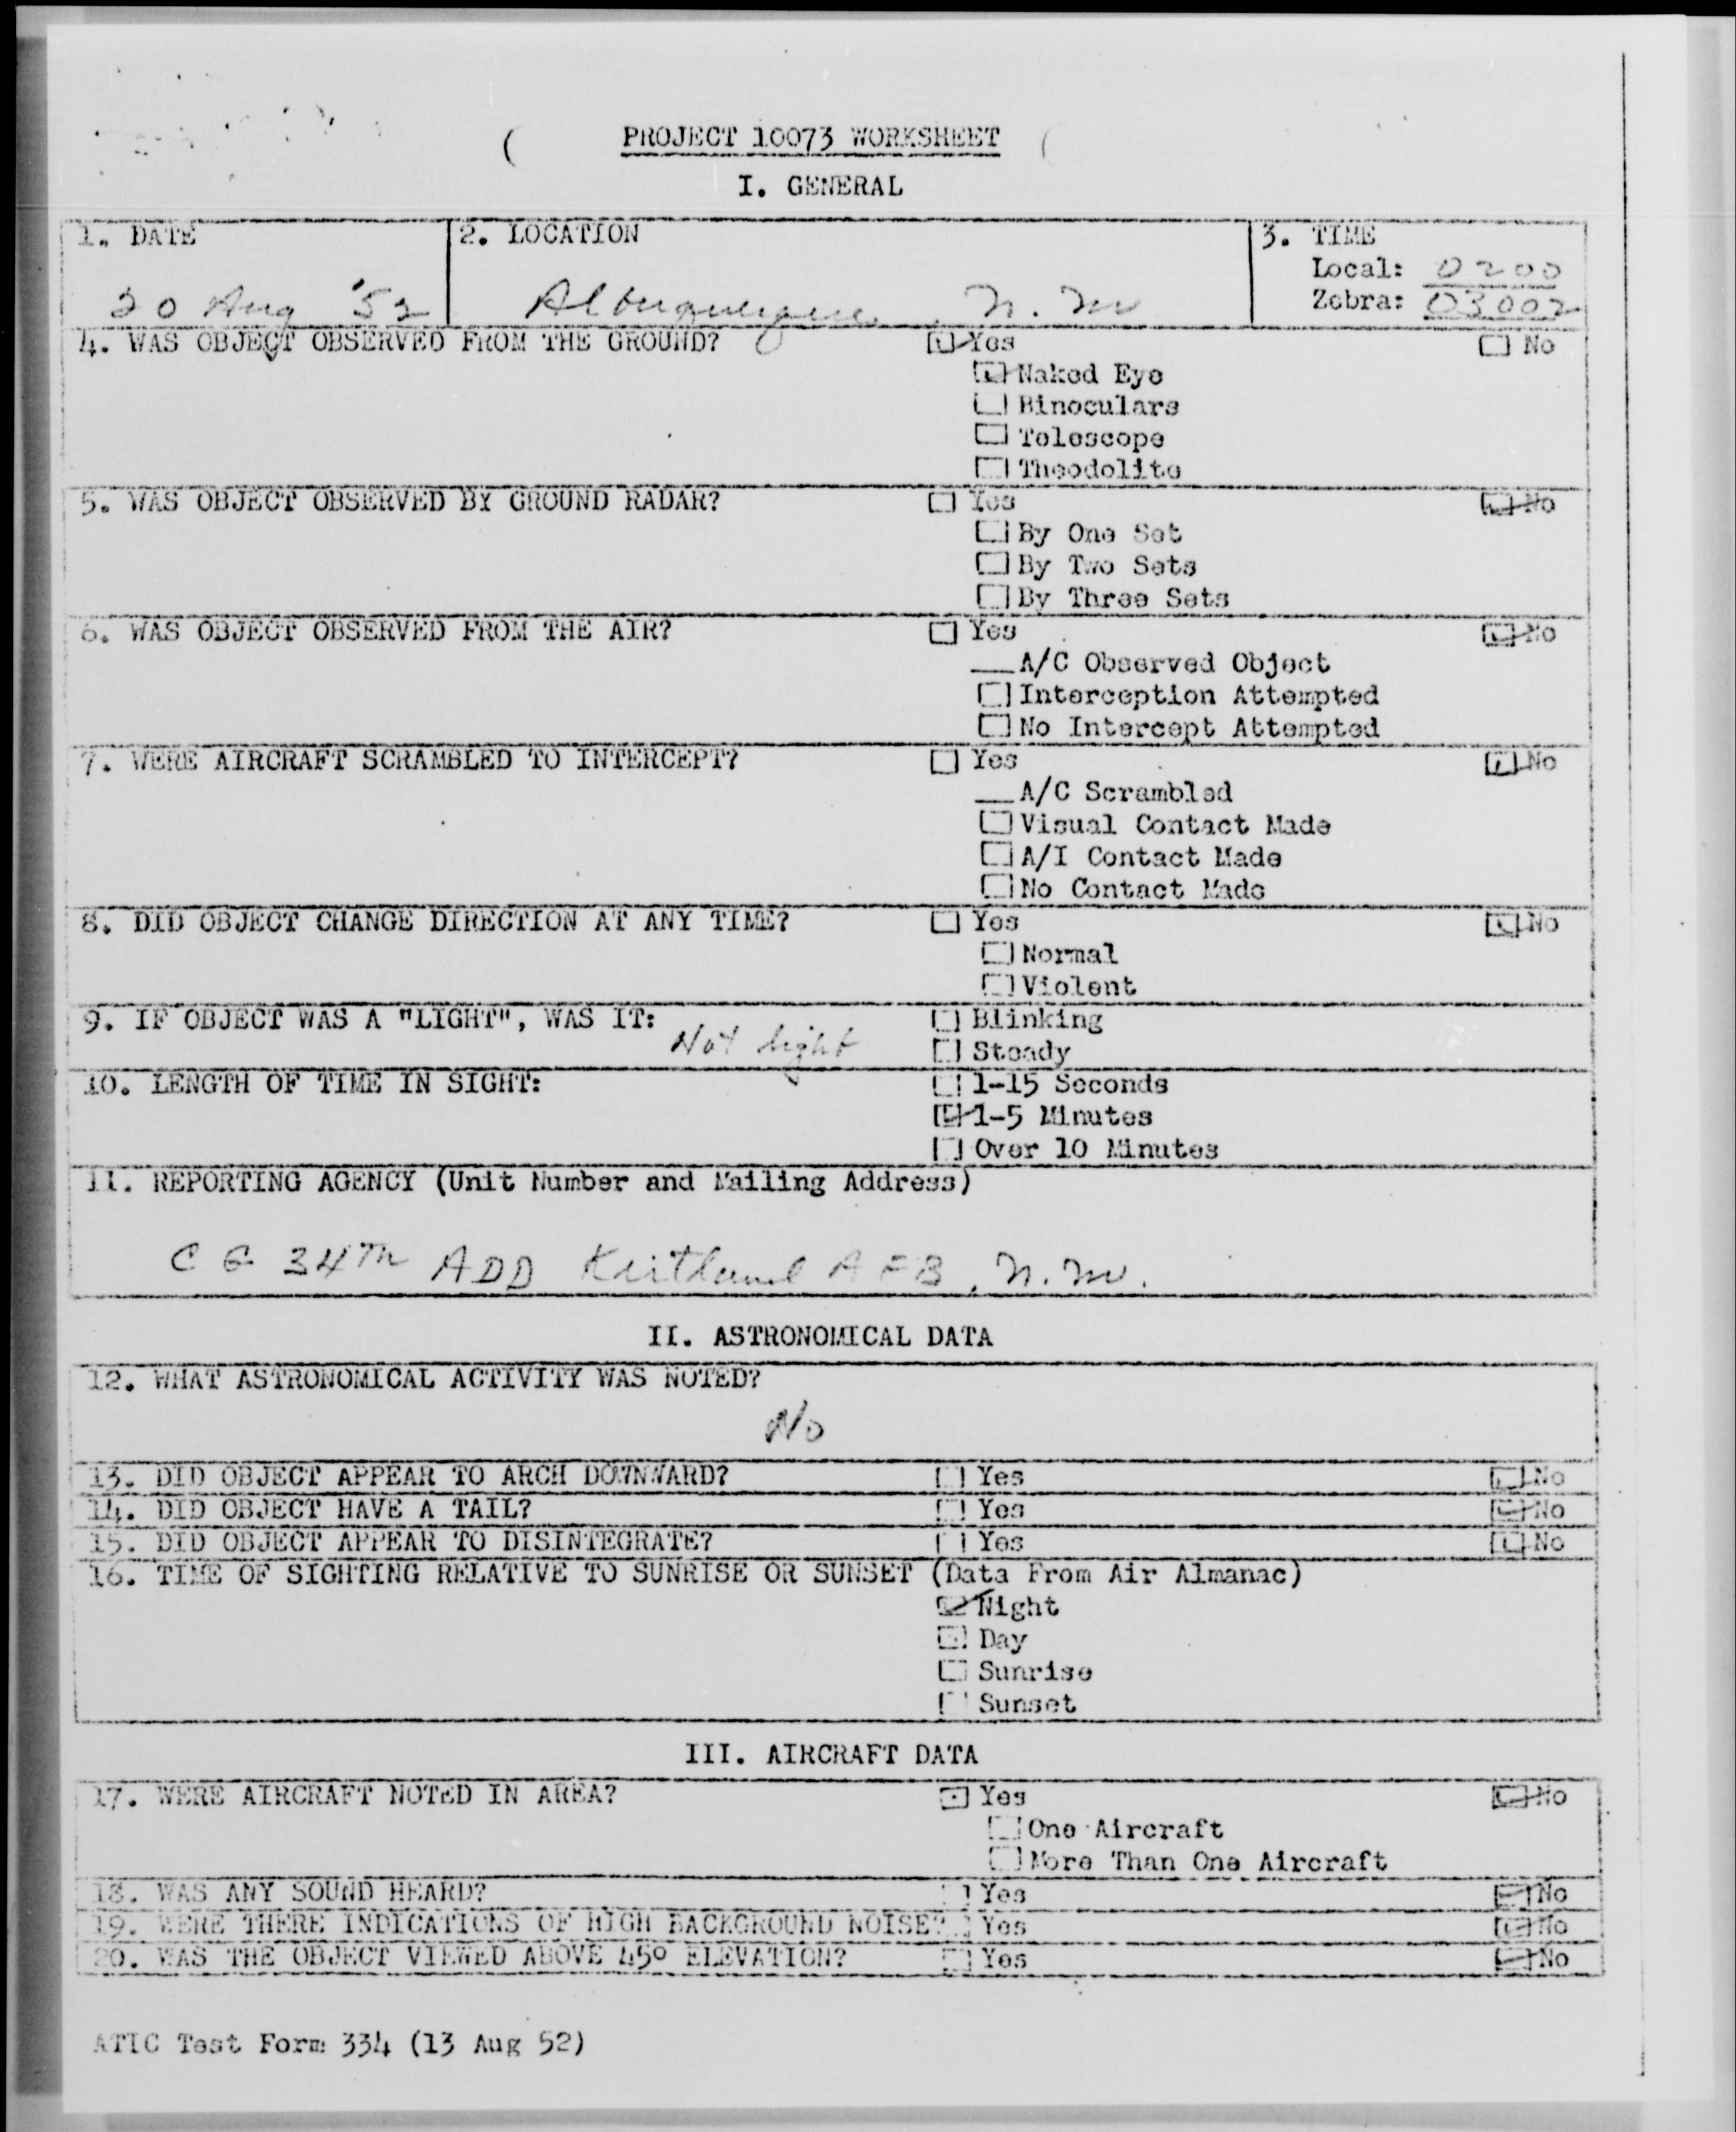 PROJECT 10073 WORKSHEET
I. GENERAL
1. DATE 2. LOCATION 3. TIME
Local: 0200
20 Aug '52 Albuquerque N. M Zebra: 0300Z
4. WAS OBJECT OBSERVED FROM THE GROUND? Yes No
Naked Eye
Binoculars
Telescope
Theodolite
5. WAS OBJECT OBSERVED BY GROUND RADAR? Yes No
By One Set
By Two Sets
By Three Sets
6. WAS OBJECT OBSERVED FROM THE AIR? Yes No
__A/C Observed Object
Interception Attempted
No Intercept Attempted
7. WERE AIRCRAFT SCRAMBLED TO INTERCEPT? Yes No
__A/C Scrambled
Visual Contact Made
A/I Contact Made
No Contact Made
8. DID OBJECT CHANGE DIRECTION AT ANY TIME? Yes No
Normal
Violent
9. IF OBJECT WAS A "LIGHT", WAS IT: Blinking
Not light Steady
10. LENGTH OF TIME IN SIGHT: 1-15 Seconds
1-5 Minutes
Over 10 Minutes
11. REPORTING AGENCY (Unit Number and Mailing Address)
C G 34TH ADD Kirtland AFB, N.M.
II. ASTRONOMICAL DATA
12. WHAT ASTRONOMICAL ACTIVITY WAS NOTED?
No
13. DID OBJECT APPEAR TO ARCH DOWNWARD? Yes No
14. DID OBJECT HAVE A TAIL? Yes No
15. DID OBJECT APPEAR TO DISINTEGRATE? Yes No
16. TIME OF SIGHTING RELATIVE TO SUNRISE OR SUNSET (Data From Air Almanac)
Night
Day
Sunrise
Sunset
III. AIRCRAFT DATA
17. WERE AIRCRAFT NOTED IN AREA? Yes No
One Aircraft
More Than One Aircraft
18. WAS ANY SOUND HEARD? Yes No
19. WERE THERE INDICATIONS OF HIGH BACKGROUND NOISE? Yes No
20. WAS THE OBJECT VIEWED ABOVE 45° ELEVATION? Yes No
ATIC Test Form 334 (13 Aug 52)